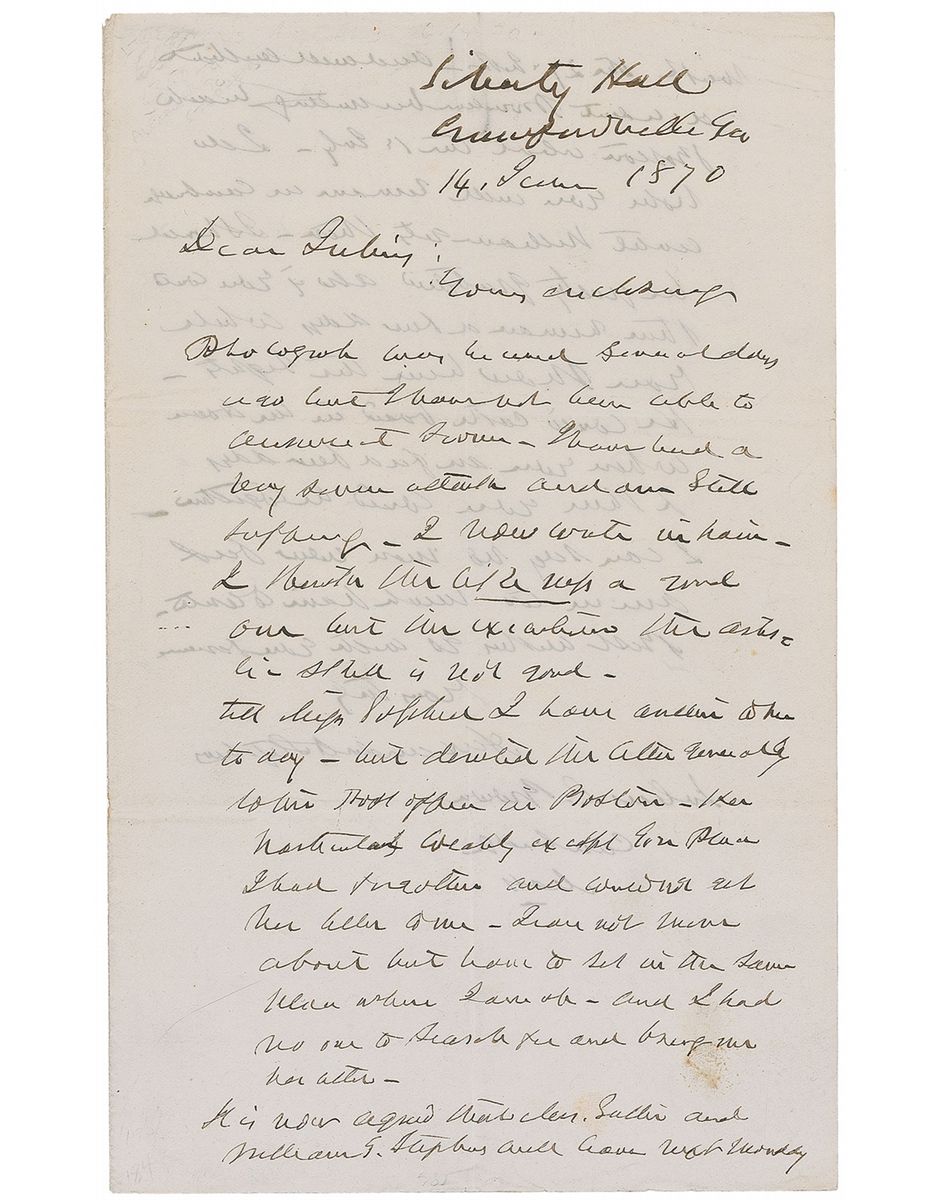 Liberty Hall
Crawfordville Ga
14, June 1870
Dear Julius;
Yours enclosing
Photograph was received several days
ago but I have not been able to
answer it sooner - I have had a
very severe attack and am still
suffering - I now write in pain -
I think the likeness a good
one but the execution the artis-
tic skill is not good -
Miss I have to her
to day - but directed the letter generally
to the Post office in Boston - Her
particular except
I had forgotten and could not get
her letter to me - I can not move
about but have to set in the same
place where I am - and I had
no one to search for and bring me
her letter -
It is now agreed that and
William G. Stephens will leave next Monday